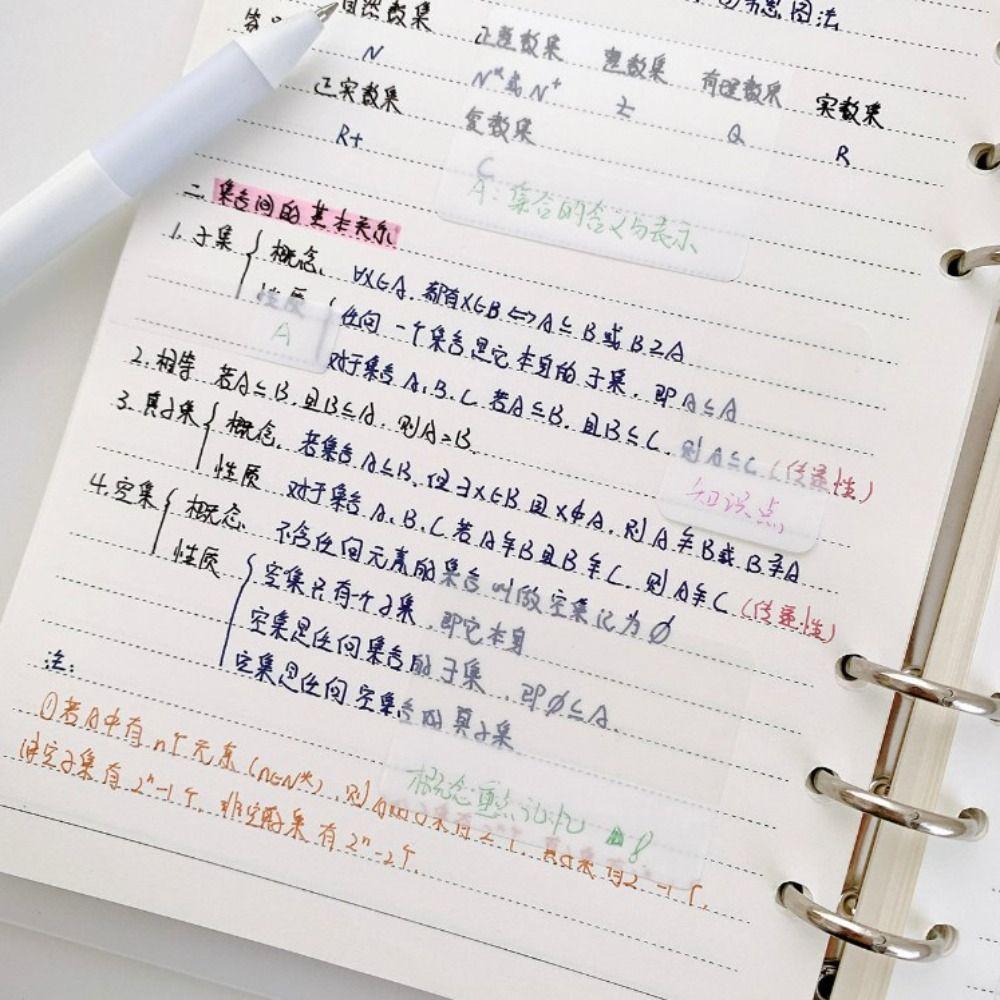 韦恩图法
答: 自然数集 正整数集 整数集 有理数集 实数集
N N*或N+ Z Q R
正实数集 复数集
R+ C
A: 集合的含义与表示
二. 集合间的基本关系
1. 子集 { 概念. ∀x∈A. 都有x∈B⇔A⊆B或B⊇A
性质 { 任何一个集合是它本身的子集. 即A⊆A
A
对于集合A.B.C.若A⊆B.且B⊆C.则A⊆C (传递性)
2. 相等 若A⊆B.且B⊆A.则A=B.
3. 真子集 { 概念. 若集合A⊆B.但∃x∈B且x∉A.则A⫋B或B⫌A
知识点
性质 对于集合A.B.C若A⫋B且B⫋C.则A⫋C (传递性)
4. 空集 { 概念. 不含任何元素的集合叫做空集记为∅
性质 { 空集只有个子集.即它本身
空集是任何集合的子集.即∅⊆A.
空集是任何空集合的真子集
注:
①若A中有n个元素(n∈N*).则A的子集有2ⁿ个.真子集有2ⁿ-1个.
概念重点记忆
8
非空子集有2ⁿ-1个.非空真子集有2ⁿ-2个.